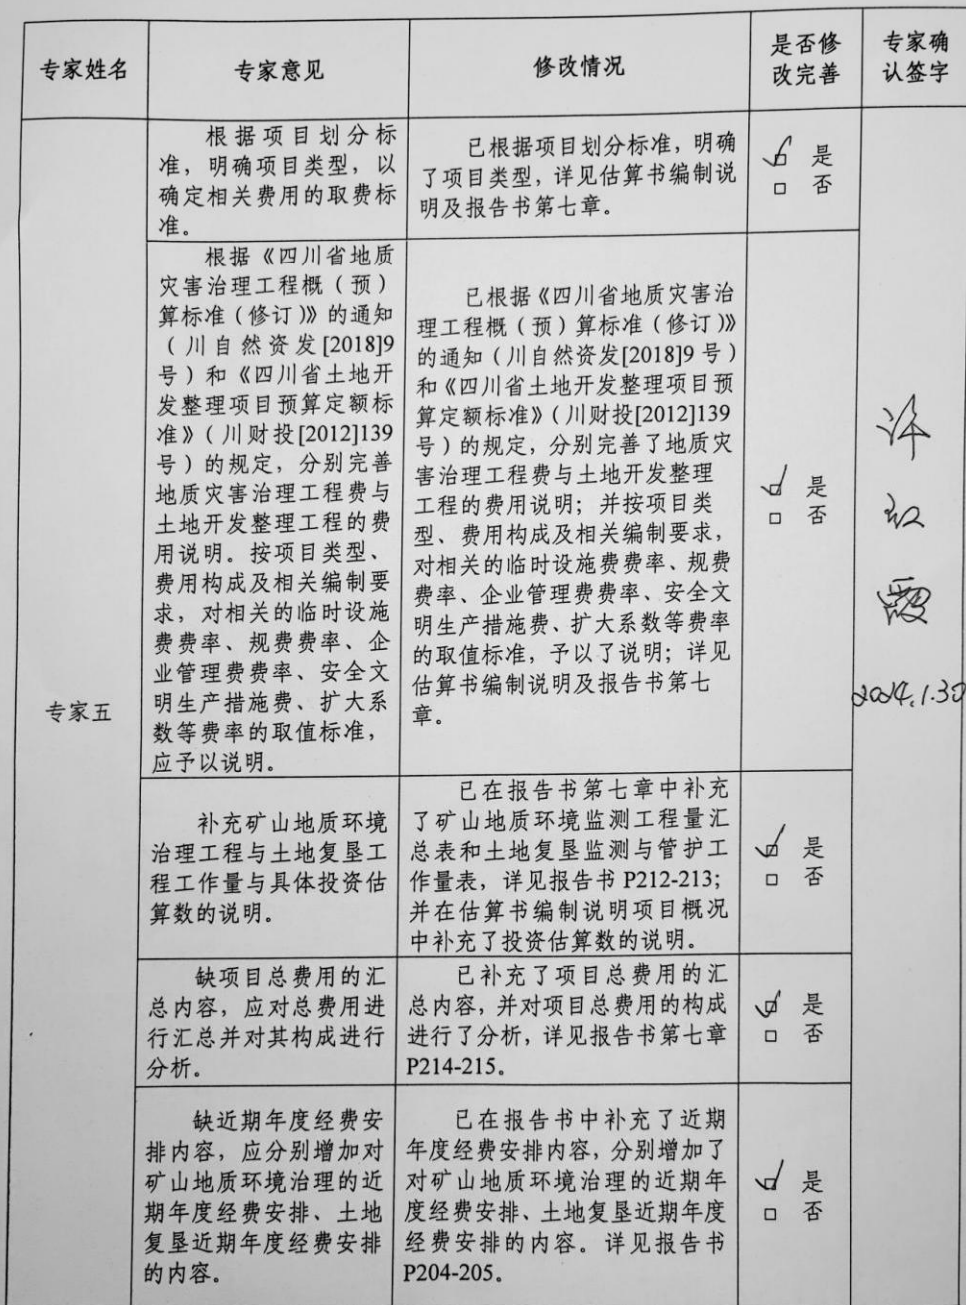 专家姓名
专家意见
修改情况
是否修
改完善
专家确
认签字
专家五
根据项目划分标
准，明确项目类型，以
确定相关费用的取费标
准。
已根据项目划分标准，明确
了项目类型，详见估算书编制说
明及报告书第七章。
是
否
根据《四川省地质
灾害治理工程概（预）
算标准（修订）》的通知
（川自然资发[2018]9
号）和《四川省土地开
发整理项目预算定额标
准》（川财投[2012]139
号）的规定，分别完善
地质灾害治理工程费与
土地开发整理工程的费
用说明。按项目类型、
费用构成及相关编制要
求，对相关的临时设施
费费率、规费费率、企
业管理费费率、安全文
明生产措施费、扩大系
数等费率的取值标准，
应予以说明。
已根据《四川省地质灾害治
理工程概（预）算标准（修订）》
的通知（川自然资发[2018]9 号）
和《四川省土地开发整理项目预
算定额标准》（川财投[2012]139
号）的规定，分别完善了地质灾
害治理工程费与土地开发整理
工程的费用说明；并按项目类
型、费用构成及相关编制要求，
对相关的临时设施费费率、规费
费率、企业管理费费率、安全文
明生产措施费、扩大系数等费率
的取值标准，予以了说明；详见
估算书编制说明及报告书第七
章。
是
否
补充矿山地质环境
治理工程与土地复垦工
程工作量与具体投资估
算数的说明。
已在报告书第七章中补充
了矿山地质环境监测工程量汇
总表和土地复垦监测与管护工
作量表，详见报告书 P212-213；
并在估算书编制说明项目概况
中补充了投资估算数的说明。
是
否
缺项目总费用的汇
总内容，应对总费用进
行汇总并对其构成进行
分析。
已补充了项目总费用的汇
总内容，并对项目总费用的构成
进行了分析，详见报告书第七章
P214-215。
是
否
缺近期年度经费安
排内容，应分别增加对
矿山地质环境治理的近
期年度经费安排、土地
复垦近期年度经费安排
的内容。
已在报告书中补充了近期
年度经费安排内容，分别增加了
对矿山地质环境治理的近期年
度经费安排、土地复垦近期年度
经费安排的内容。详见报告书
P204-205。
是
否
许
红
霞
2024.1.30